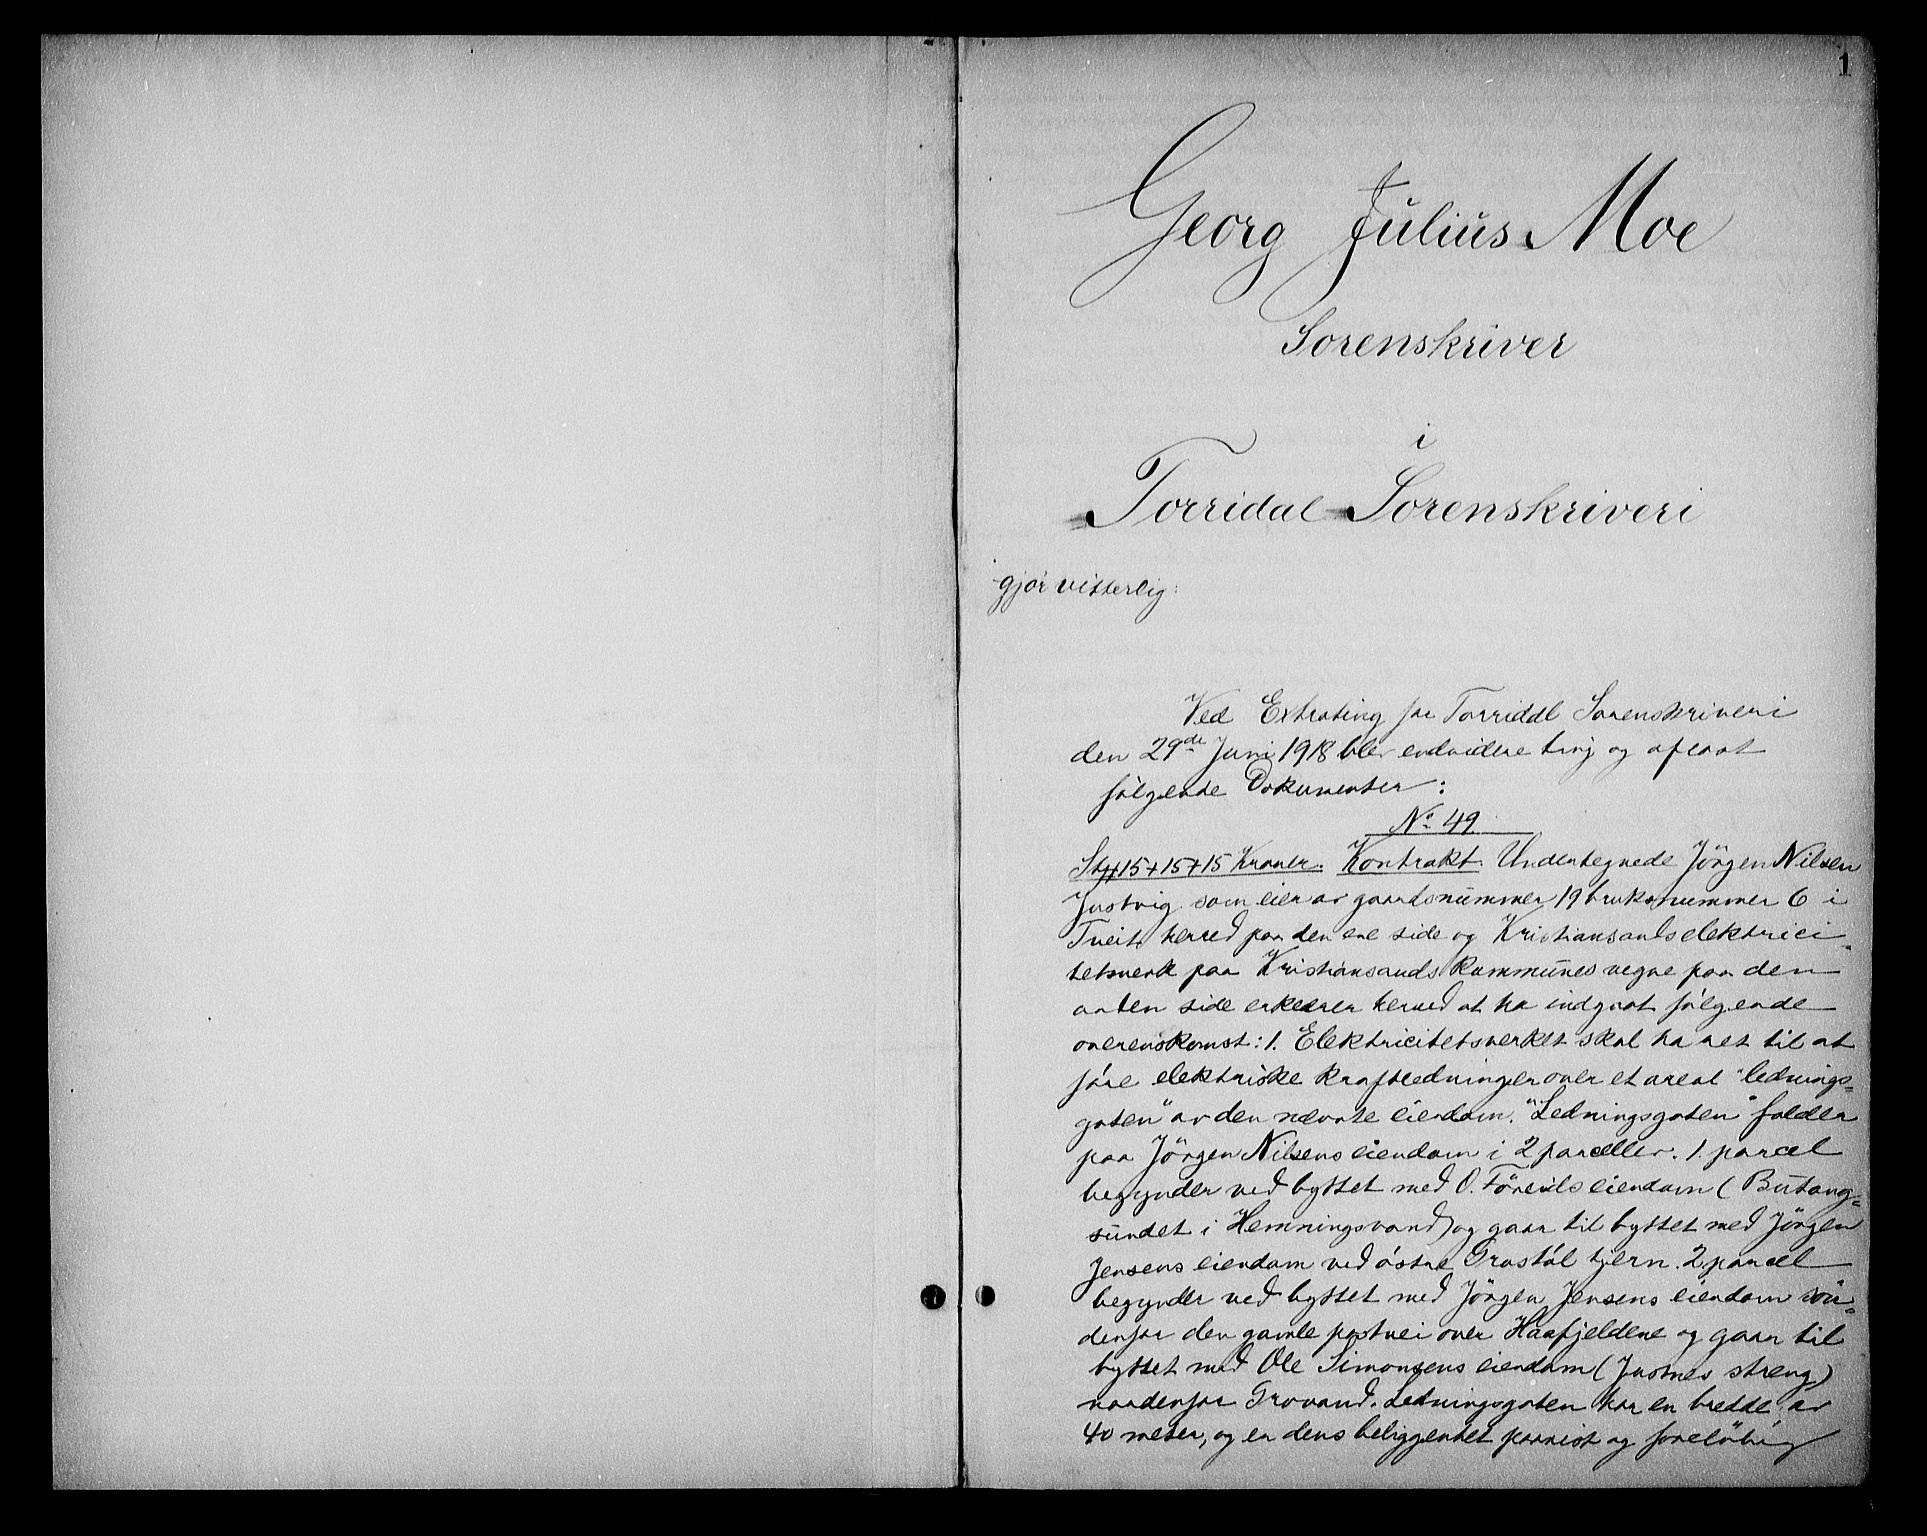 1
Georg Julius Moe
Sorenskriver
i
Torridal Sorenskriveri
gjør vitterlig:
Ved Extrating for Torridal Sorenskriveri
den 29de Juni 1918 blev endvidere tingl og aflæst
følgende Dokumenter:
No 49
St # 15+15+15 Kroner. Kontrakt. Undertegnede Jörgen Nilsen
Justvig som eier av gaardsnummer 19 bruksnummer 6 i
Tveit herred paa den ene side og Kristiansands elektrici-
tetsverk paa Kristiansands kommunes vegne paa den
anden side erklærer herved at ha indgaat følgende
overenskomst: 1. Elektricitetsverket skal ha ret til at
føre elektriske kraftledninger over et areal "lednings-
gaten" av den nævnte eiendom. "Ledningsgaten" falder
paa Jörgen Nilsens eiendom i 2 parceller. 1. parcel
begynder ved byttet med O. Föreids eiendom (Butang-
sundet i Hemningsvand) og gaar til byttet med Jörgen
Jensens eiendom ved østre Grastöl tjern. 2. parcel
begynder ved byttet med Jörgen Jensens eiendom sön-
denfor den gamle postvei over Haafjeldene og gaar til
byttet med Ole Simonsens eiendom (Justnes streng)
nordenfor Grovand. Ledningsgaten har en bredde av
40 meter, og er dens beliggenhet paavist og foreløbig